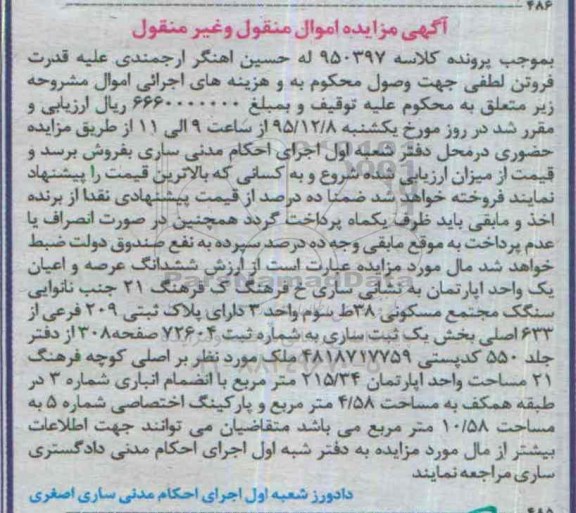 ۴۸۶
آگهی مزایده اموال منقول وغیر منقول
بموجب پرونده کلاسه ۹۵۰۳۹۷ له حسین اهنگر ارجمندی علیه قدرت
فروتن لطفی جهت وصول محکوم به و هزینه های اجرائی اموال مشروحه
زیر متعلق به محکوم علیه توقیف و بمبلغ ۶۶۶۰۰۰۰۰۰۰ ریال ارزیابی و
مقرر شد در روز مورخ یکشنبه ۹۵/۱۲/۸ از ساعت ۹ الی ۱۱ از طریق مزایده
حضوری درمحل دفتر شعبه اول اجرای احکام مدنی ساری بفروش برسد و
قیمت از میزان ارزیابی شده شروع و به کسانی که بالاترین قیمت را پیشنهاد
نمایند فروخته خواهد شد ضمنا ده درصد از قیمت پیشنهادی نقدا از برنده
اخذ و مابقی باید ظرف یکماه پرداخت گردد همچنین در صورت انصراف یا
عدم پرداخت به موقع مابقی وجه ده درصد سپرده به نفع صندوق دولت ضبط
خواهد شد مال مورد مزایده عبارت است از ارزش ششدانگ عرصه و اعیان
یک واحد اپارتمان به نشانی ساری خ فرهنگ ک فرهنگ ۲۱ جنب نانوایی
سنگک مجتمع مسکونی ۳۸ط سوم واحد ۳ دارای پلاک ثبتی ۲۰۹ فرعی از
۶۳۳ اصلی بخش یک ثبت ساری به شماره ثبت ۷۲۶۰۴ صفحه۳۰۸ از دفتر
جلد ۵۵۰ کدپستی ۴۸۱۸۷۱۷۷۵۹ ملک مورد نظر بر اصلی کوچه فرهنگ
۲۱ مساحت واحد اپارتمان ۲۱۵/۳۴ متر مربع با انضمام انباری شماره ۳ در
طبقه همکف به مساحت ۴/۵۸ متر مربع و پارکینگ اختصاصی شماره ۵ به
مساحت ۱۰/۵۸ متر مربع می باشد متقاضیان می توانند جهت اطلاعات
بیشتر از مال مورد مزایده به دفتر شبه اول اجرای احکام مدنی دادگستری
ساری مراجعه نمایند
دادورز شعبه اول اجرای احکام مدنی ساری اصغری
۴۸۵